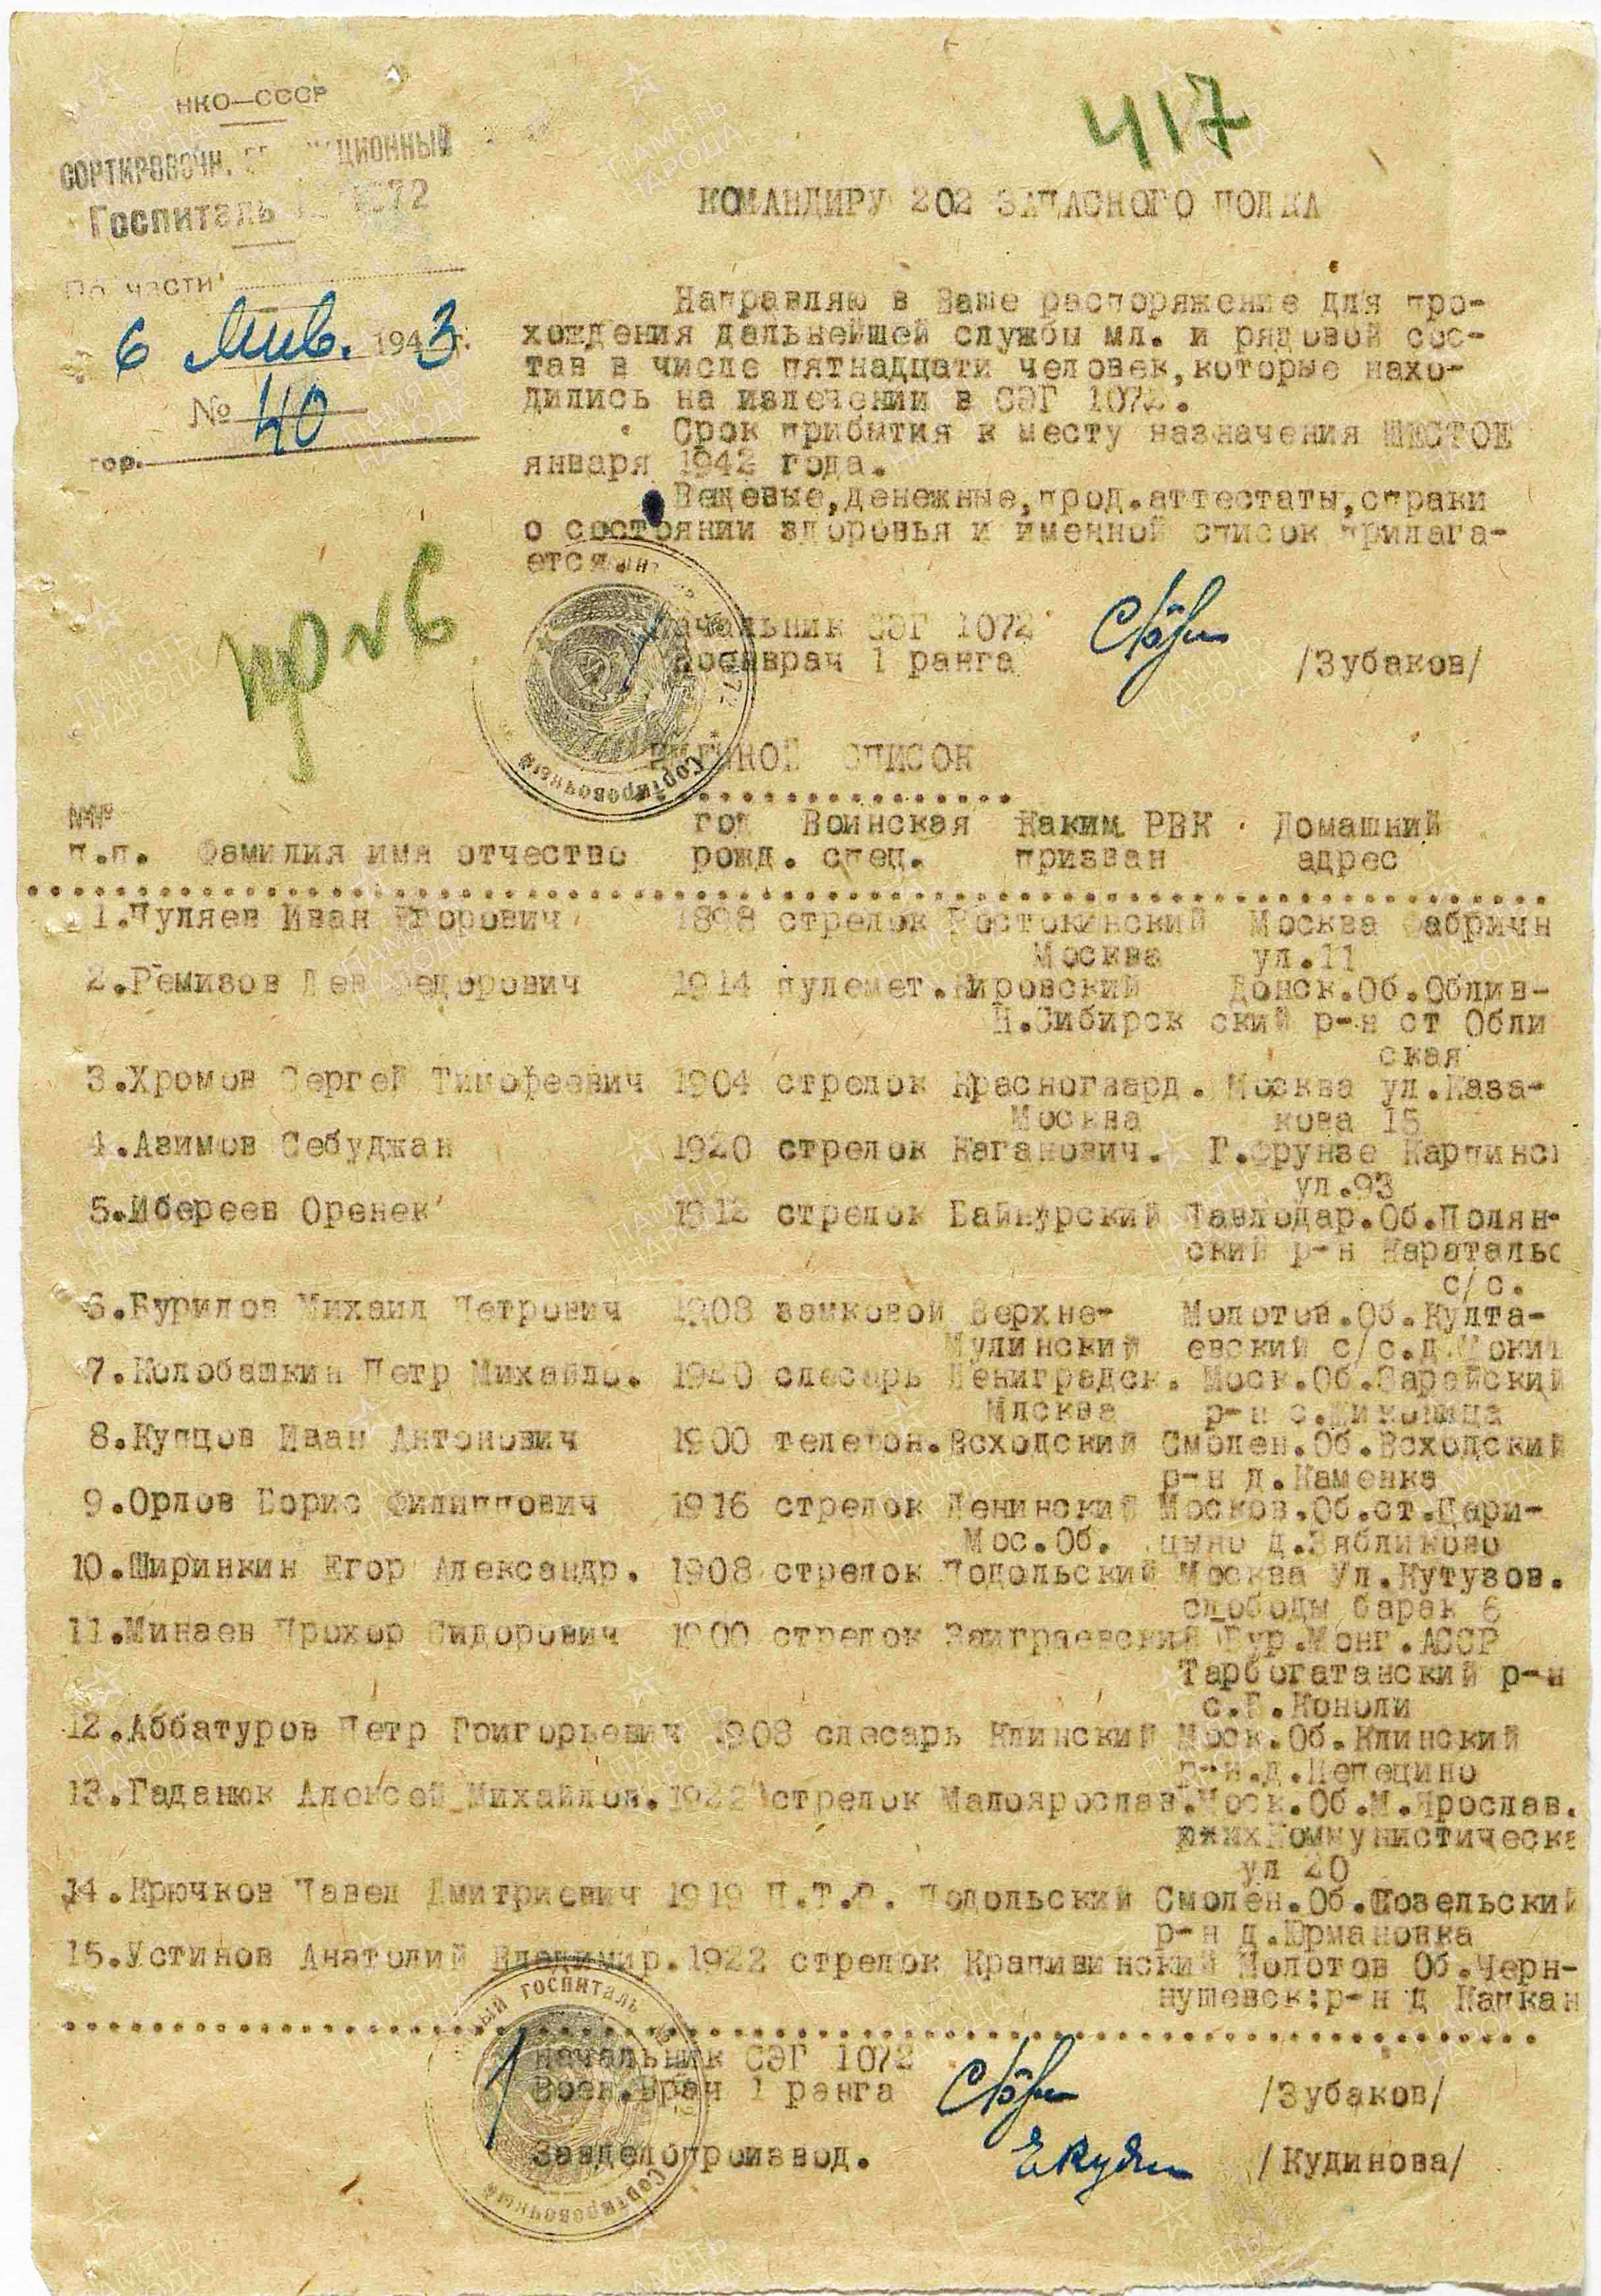 НКО—СССР
СОРТИРОВОЧН. ЦИОННЫЙ
Госпиталь 1072
По части
6 Янв. 1943 г.
№ 40
гор.
417
КОМАНДИРУ 202 ЗАПАСНОГО ПОЛКА
Направляю в Ваше распоряжение для про-
хождения дальнейшей службы мл. и рядовой сос-
тав в числе пятнадцати человек, которые нахо-
дились на излечении в СЭГ 1072.
Срок прибытия к месту назначения ШЕСТОЕ
января 1942 года.
Вещевые, денежные, прод. аттестаты, спраки
о состоянии здоровья и именной список прилага-
ется.
пр №6
Начальник СЭГ 1072
Военврач 1 ранга /Зубаков/
Сортировочный
ИМЕННОЙ СПИСОК
№№ год Воинская Каким РВК Домашний
п.п. Фамилия имя отчество рожд. спец. призван адрес
1.Пуляев Иван Егорович 1898 стрелок Ростокинский Москва Фабричн
Москва ул.11
2.Ремизов Лев Федорович 1914 пулемет. Кировский Донск.Об.Облив-
Н.Сибирск ский р-н ст Обли
ская
3.Хромов Сергей Тимофеевич 1904 стрелок Красногвард. Москва ул.Каза-
Москва кова 15
4.Азимов Себуджан 1920 стрелок Каганович. Г.Фрунзе Карпинс
ул.93
5.Ибереев Оренек 1912 стрелок Байнурский Павлодар.Об.Полян-
ский р-н Каратальс
с/с.
6.Бурилов Михаил Петрович 1908 замковой Верхне- Молотов.Об.Култа-
Мулинский евский с/с.д.
7.Колобашкин Петр Михайло. 1920 слесарь Лениградск. Моск.Об.Зарайский
Мдсква р-н с.
8.Купцов Иван Антонович 1900 телефон. Всходский Смолен.Об.Всходский
р-н д.Каменка
9.Орлов Борис Филиппович 1916 стрелок Ленинский Москов.Об.ст.Цари-
Мос.Об. цыно д.Зябликово
10.Ширинкин Егор Александр. 1908 стрелок Подольский Москва Ул.Кутузов.
слободы барак 6
11.Минаев Прохор Сидорович 1900 стрелок Заиграевский Бур.Монг.АССР
Тарбогатанский р-н
с. Коноли
12.Аббатуров Петр Григорьевич 1908 слесарь Клинский Моск.Об.Клинский
р-н.д.
13.Гаданюк Алексей Михайлов. 1922 стрелок Малоярослав. Моск.Об.М.Ярослав.
Коммунистическа
ул 20
14.Крючков Павел Дмитриевич 1919 П.Т.Р. Подольский Смолен.Об.Козельский
р-н д.Юрмановка
15.Устинов Анатолий Владимир. 1922 стрелок Крапивинский Молотов Об.Черн-
нушевск:р-н д Капкан
Начальник СЭГ 1072
Воен.врач 1 ранга /Зубаков/
Завделопроизвод. /Кудинова/
ный госпиталь
Сортировочный